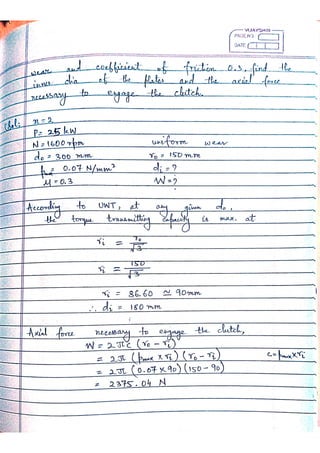 VIJAYSHRI
PAGE NO
DATE
wear and coefficient of friction 0.3, find the
inner dia of the plates and the axial force
necessary to engage the clutch.
Sol:
n = 2
P = 25 kW
N = 1600 rpm uniform wear
do = 300 mm ro = 150 mm
= 0.07 N/mm² di = ?
μ = 0.3 W = ?
According to UWT, at any given do,
the torque transmitting capacity is max. at
ri = ro/√3
ri = 150/√3
ri = 86.60 ≃ 90mm
∴ di = 180 mm
Axial force necessary to engage the clutch,
W = 2πc (ro - ri)
= 2π (pmax × ri) (ro - ri) c = pmax × ri
= 2π (0.07 × 90) (150 - 90)
= 2375.04 N